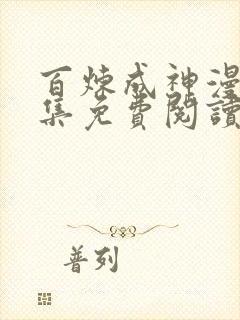 百煉成神漫
集免費閱讀
普列